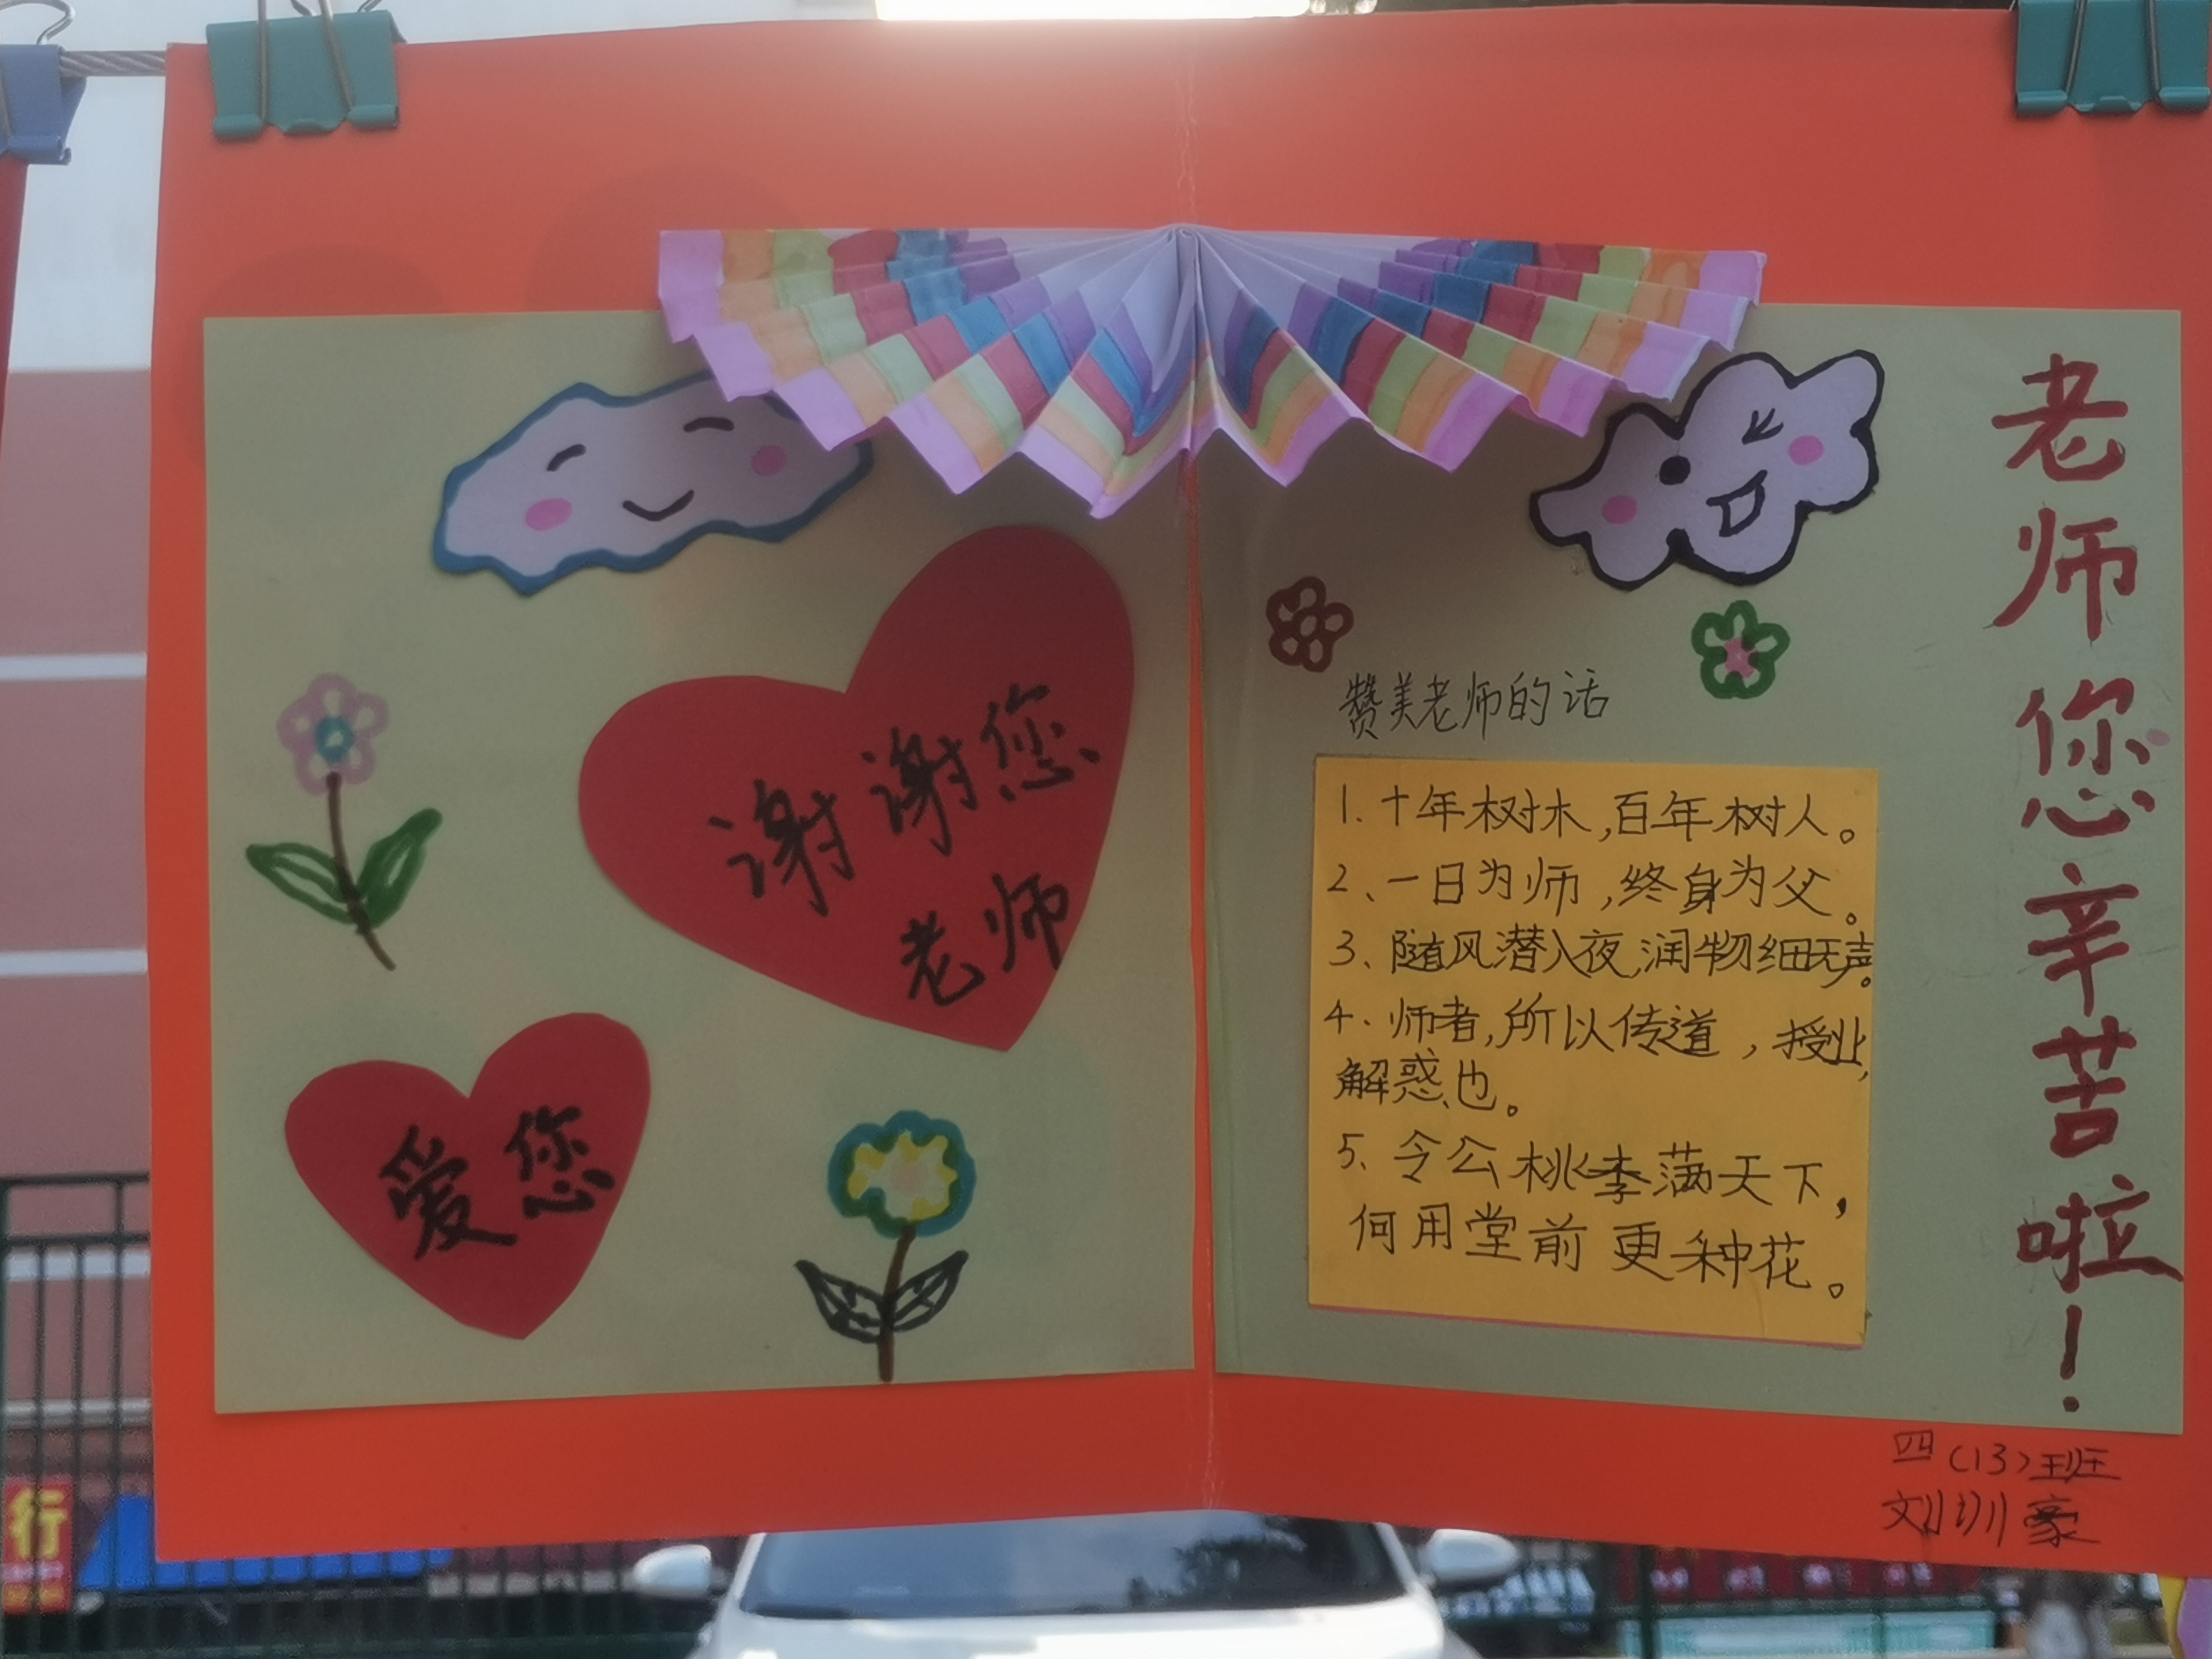 谢谢您
老师
爱您
赞美老师的话
1.十年树木,百年树人。
2、一日为师,终身为父。
3、随风潜入夜,润物细无声。
4、师者,所以传道,授业,
解惑也。
5、令公桃李满天下,
何用堂前更种花。
老师您辛苦啦!
四(13)班
刘训豪
行